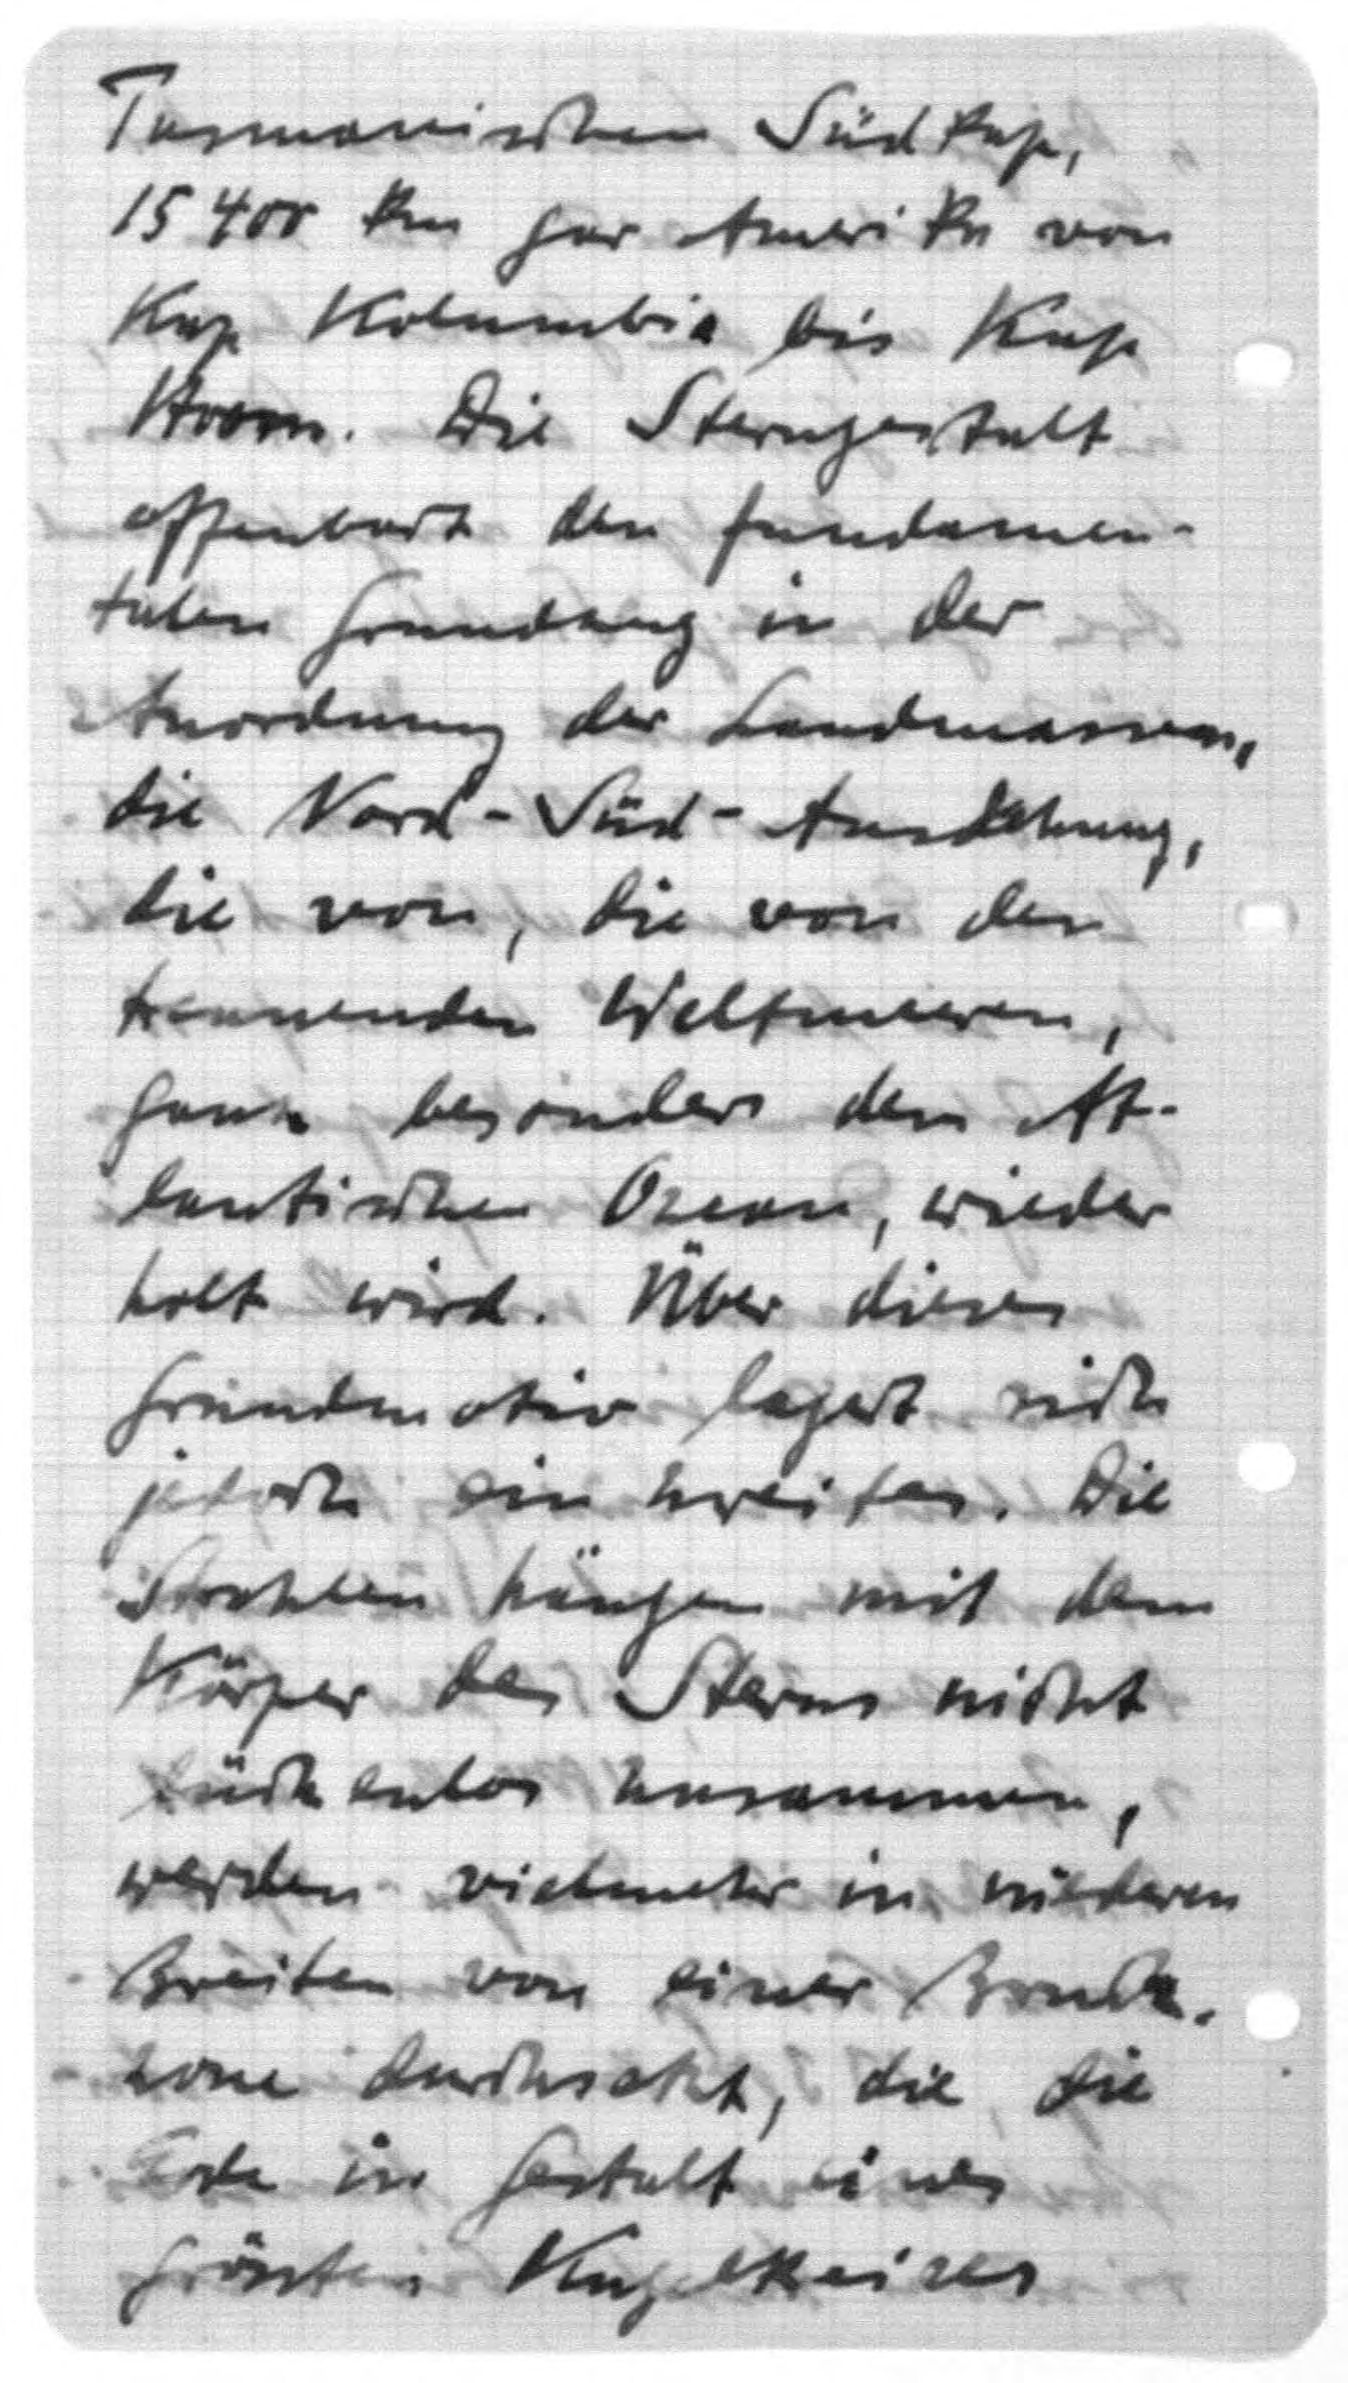 Tasmanischen Südkap,
15 400 km gar Amerika von
Kap Kolumbia bis Kap
Hoorn. Die Sterngestalt
offenbart den fundamen-
talen Grundzug in der
Anordnung der Landmassen,
die Nord-Süd-Ausdehnung,
die von, die von den
trennenden Weltmeeren,
ganz besonders dem At-
lantischen Ozean, wieder
holt wird. Über dieses
Grundmotiv lagert sich
jedoch ein zweites. Die
Strahlen hängen mit dem
Körper des Sterns nicht
lückenlos zusammen,
werden vielmehr in niederen
Breiten von einer Bruch-
zone durchsetzt, die die
Erde in Gestalt eines
größten Kugelkreises